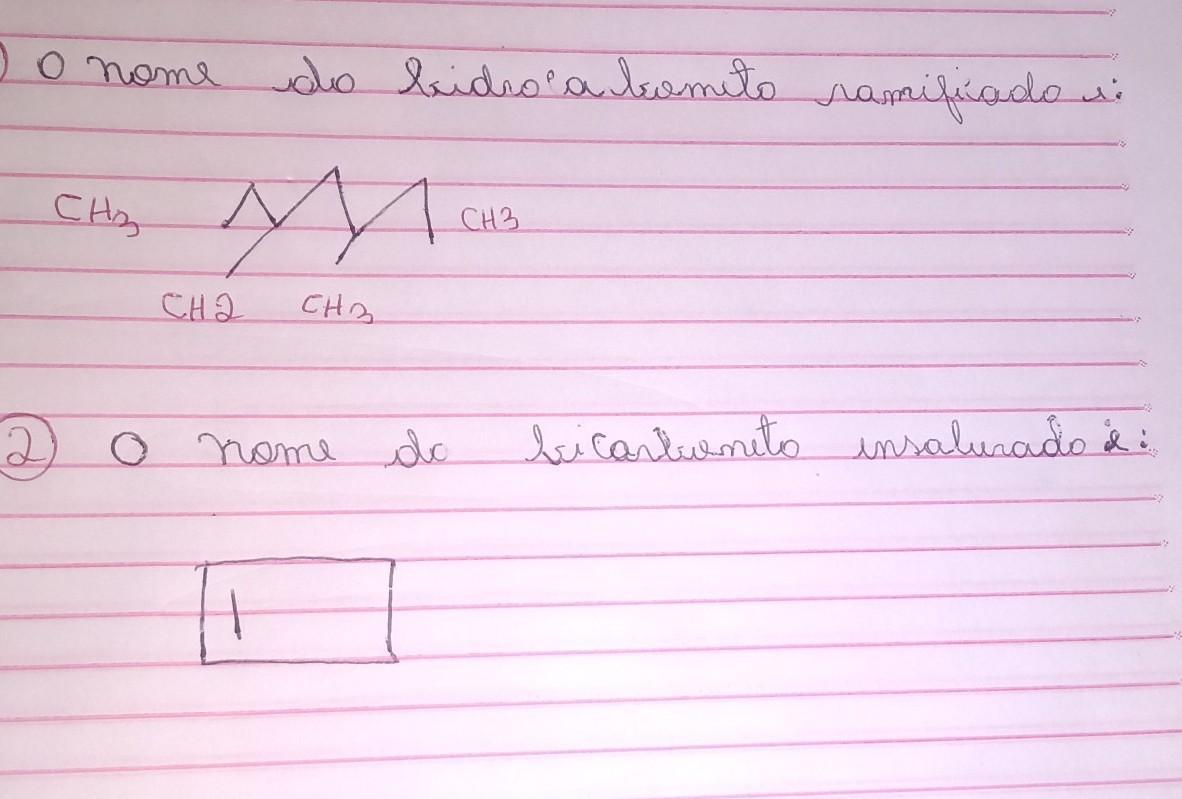 ) O nome do hidrocarboneto ramificado é:
CH3 CH3
CH2 CH3
2 O nome do hicarboneto insaturado é: